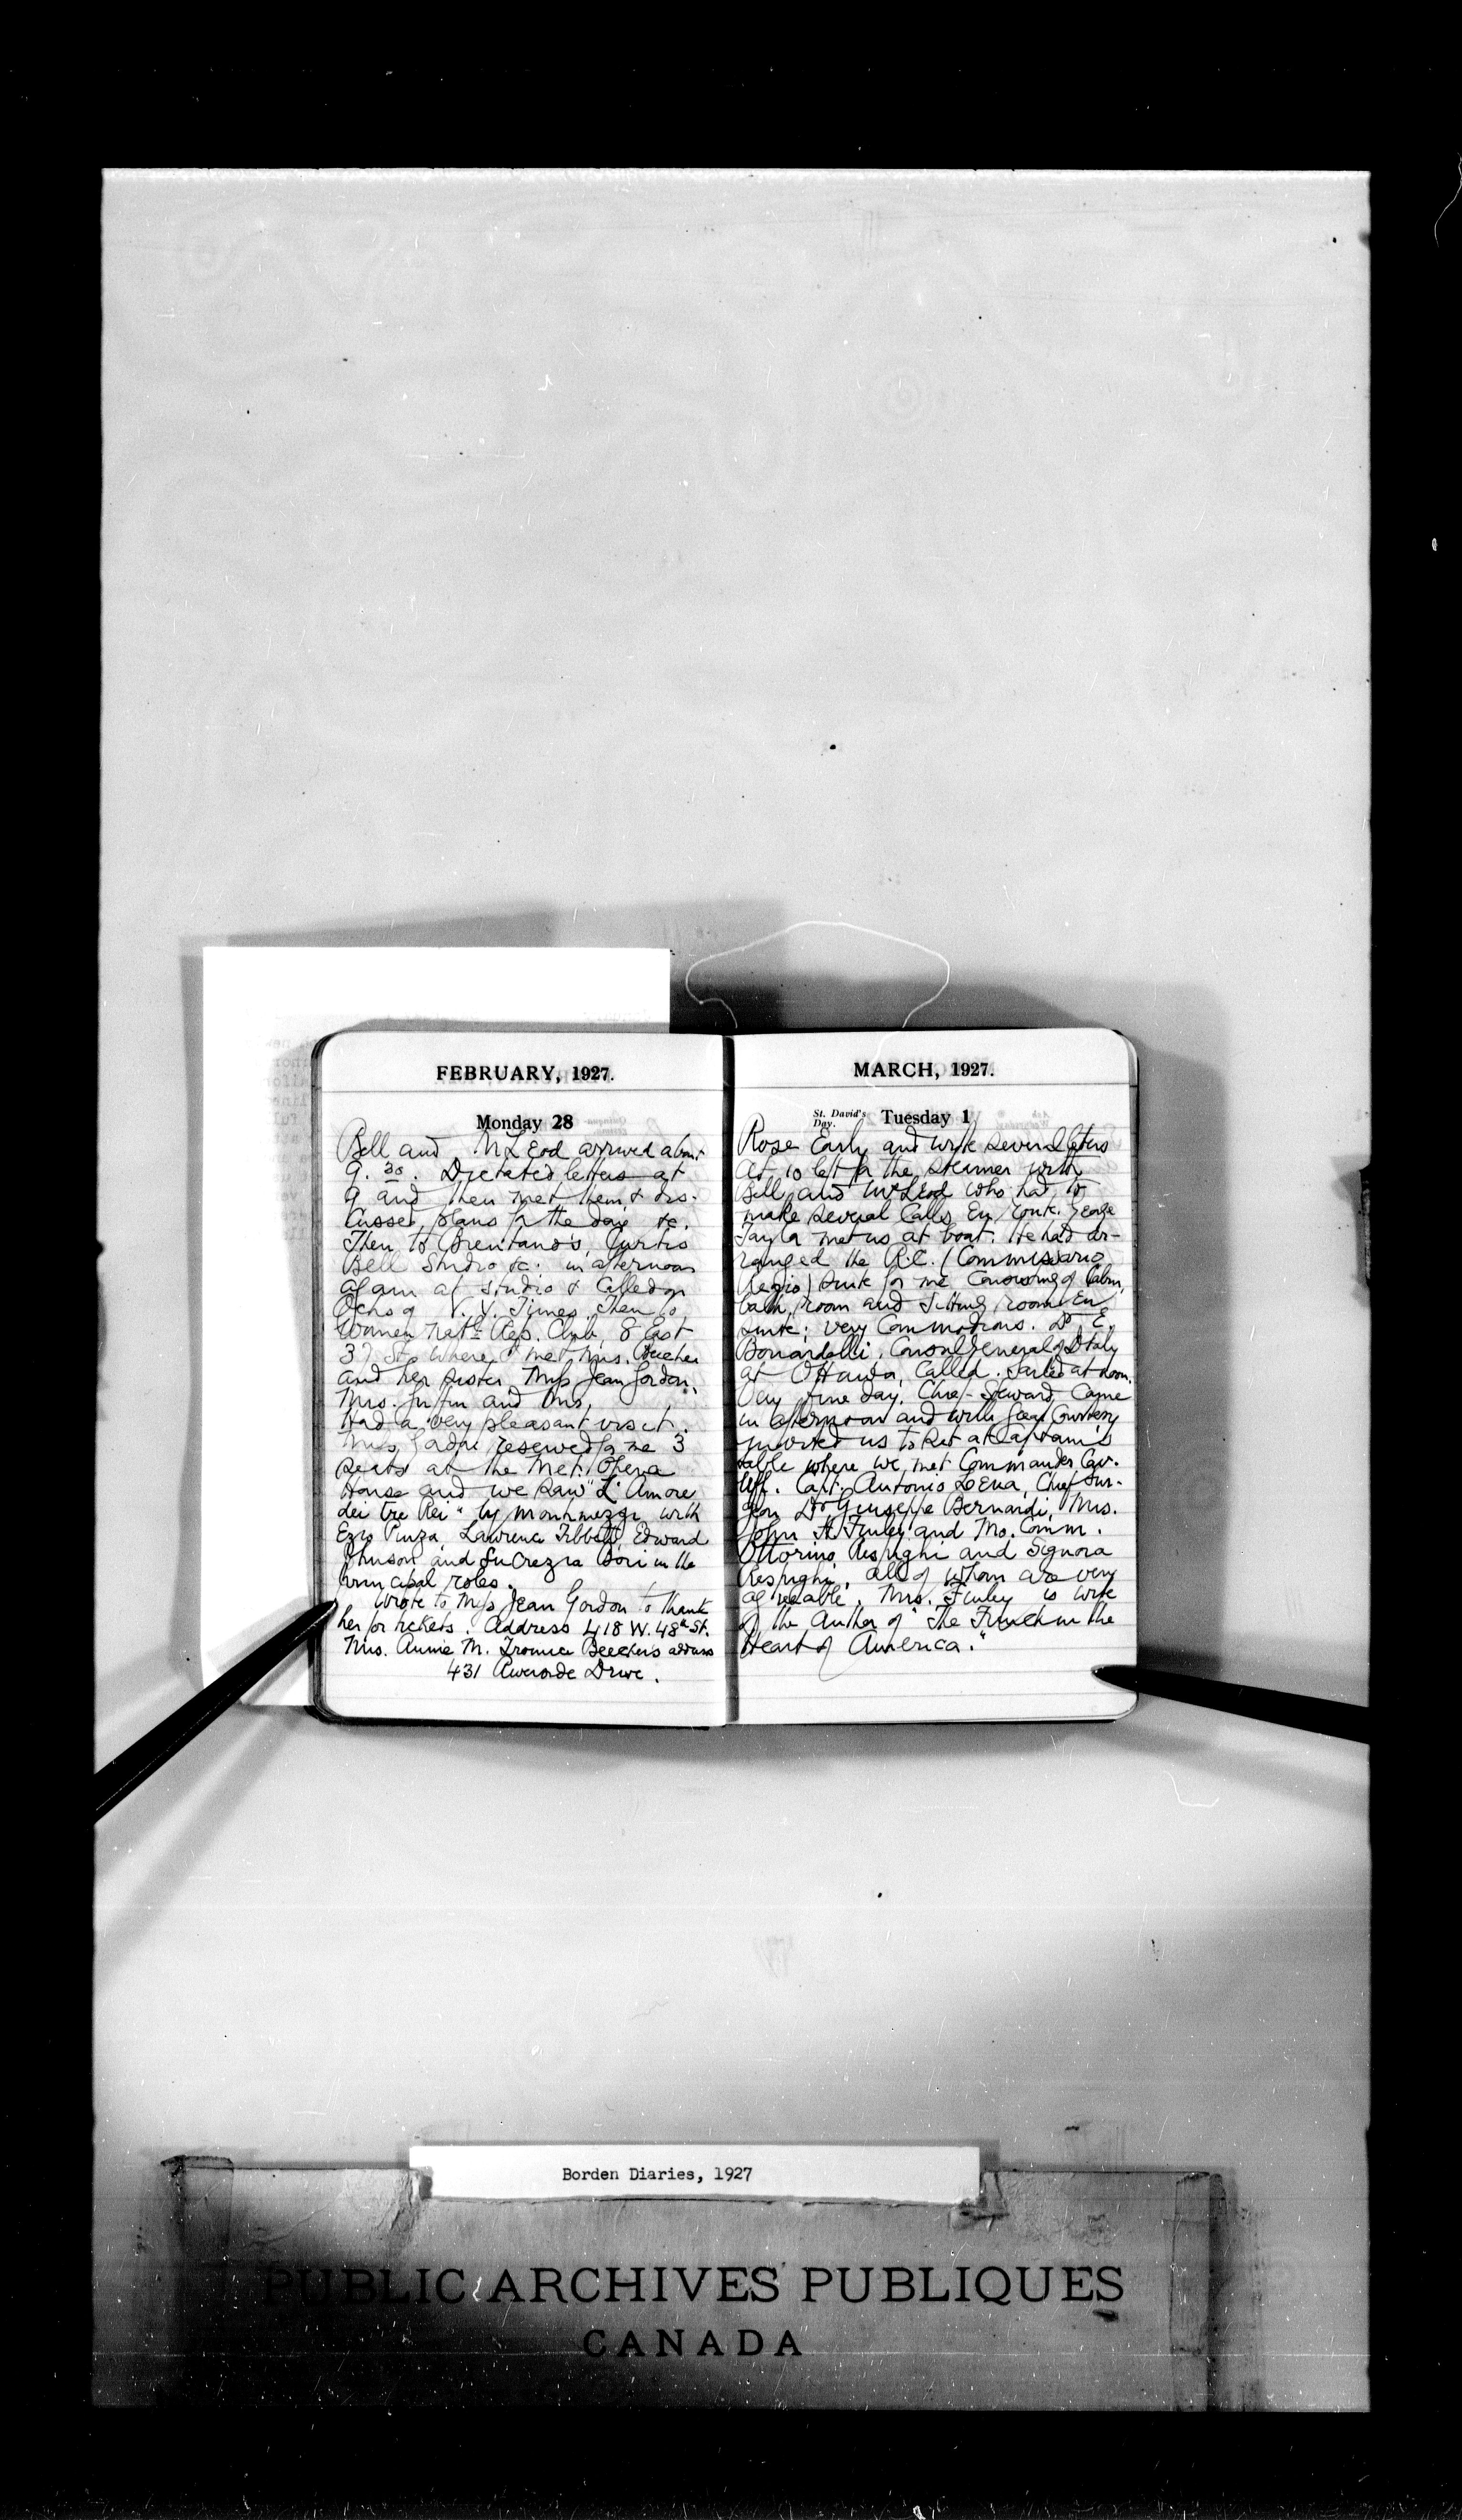 FEBRUARY, 1927.
Monday 28
Bell and McLeod arrived about
9.30. Dictated letters at
9 and then met them & dis-
cussed plans for the day &c.
Then to Brentano's, Curtis
Bell Studio &c. in afternoon
again at studio & called on
Ochs of N.Y. Times. Then to
Women Natl Rep. Club, 8 East
37 St. where I met Mrs. Beecher
and her sister Miss Jean Gordon,
Mrs. Griffin and Mrs.
Had a very pleasant visit.
Miss Gordon reserved for me 3
seats at the Met. Opera
House and we saw "L'Amore
dei tre Rei" by Montemezzi with
Ezio Pinza, Lawrence Tibbett, Edward
Johnson and Lucrezia Bori in the
principal roles.
Wrote to Miss Jean Gordon to thank
her for tickets. Address 418 W. 48th St.
Mrs. Annie M. Beecher's address
431 Riverside Drive.
MARCH, 1927.
St. David's Day.
Tuesday 1
Rose early and wrote several letters
At 10 left for the steamer with
Bell and McLeod who had to
make several calls en route. George
Taylor met us at boat. He had ar-
ranged the R.C. (Commissario
Regio) suite for me consisting of cabin,
bath room and sitting room en
suite; very commodious. 
Bonardelli, Consul General of Italy
at Ottawa, called. Sailed at noon.
Very fine day. Chief Steward came
in afternoon and with great courtesy
invited us to sit at Captain's
table where we met Commander Cav.
Uff. Capt. Antonio Lena, Chief Sur-
geon Dr Giuseppe Bernardi, Mrs.
John H. Finley and Mo. Comm.
Ottorino Respighi and Signora
Respighi, all of whom are very
agreeable. Mrs. Finley is wife
of the author of "The French in the
Heart of America."
Borden Diaries, 1927
PUBLIC ARCHIVES PUBLIQUES
CANADA